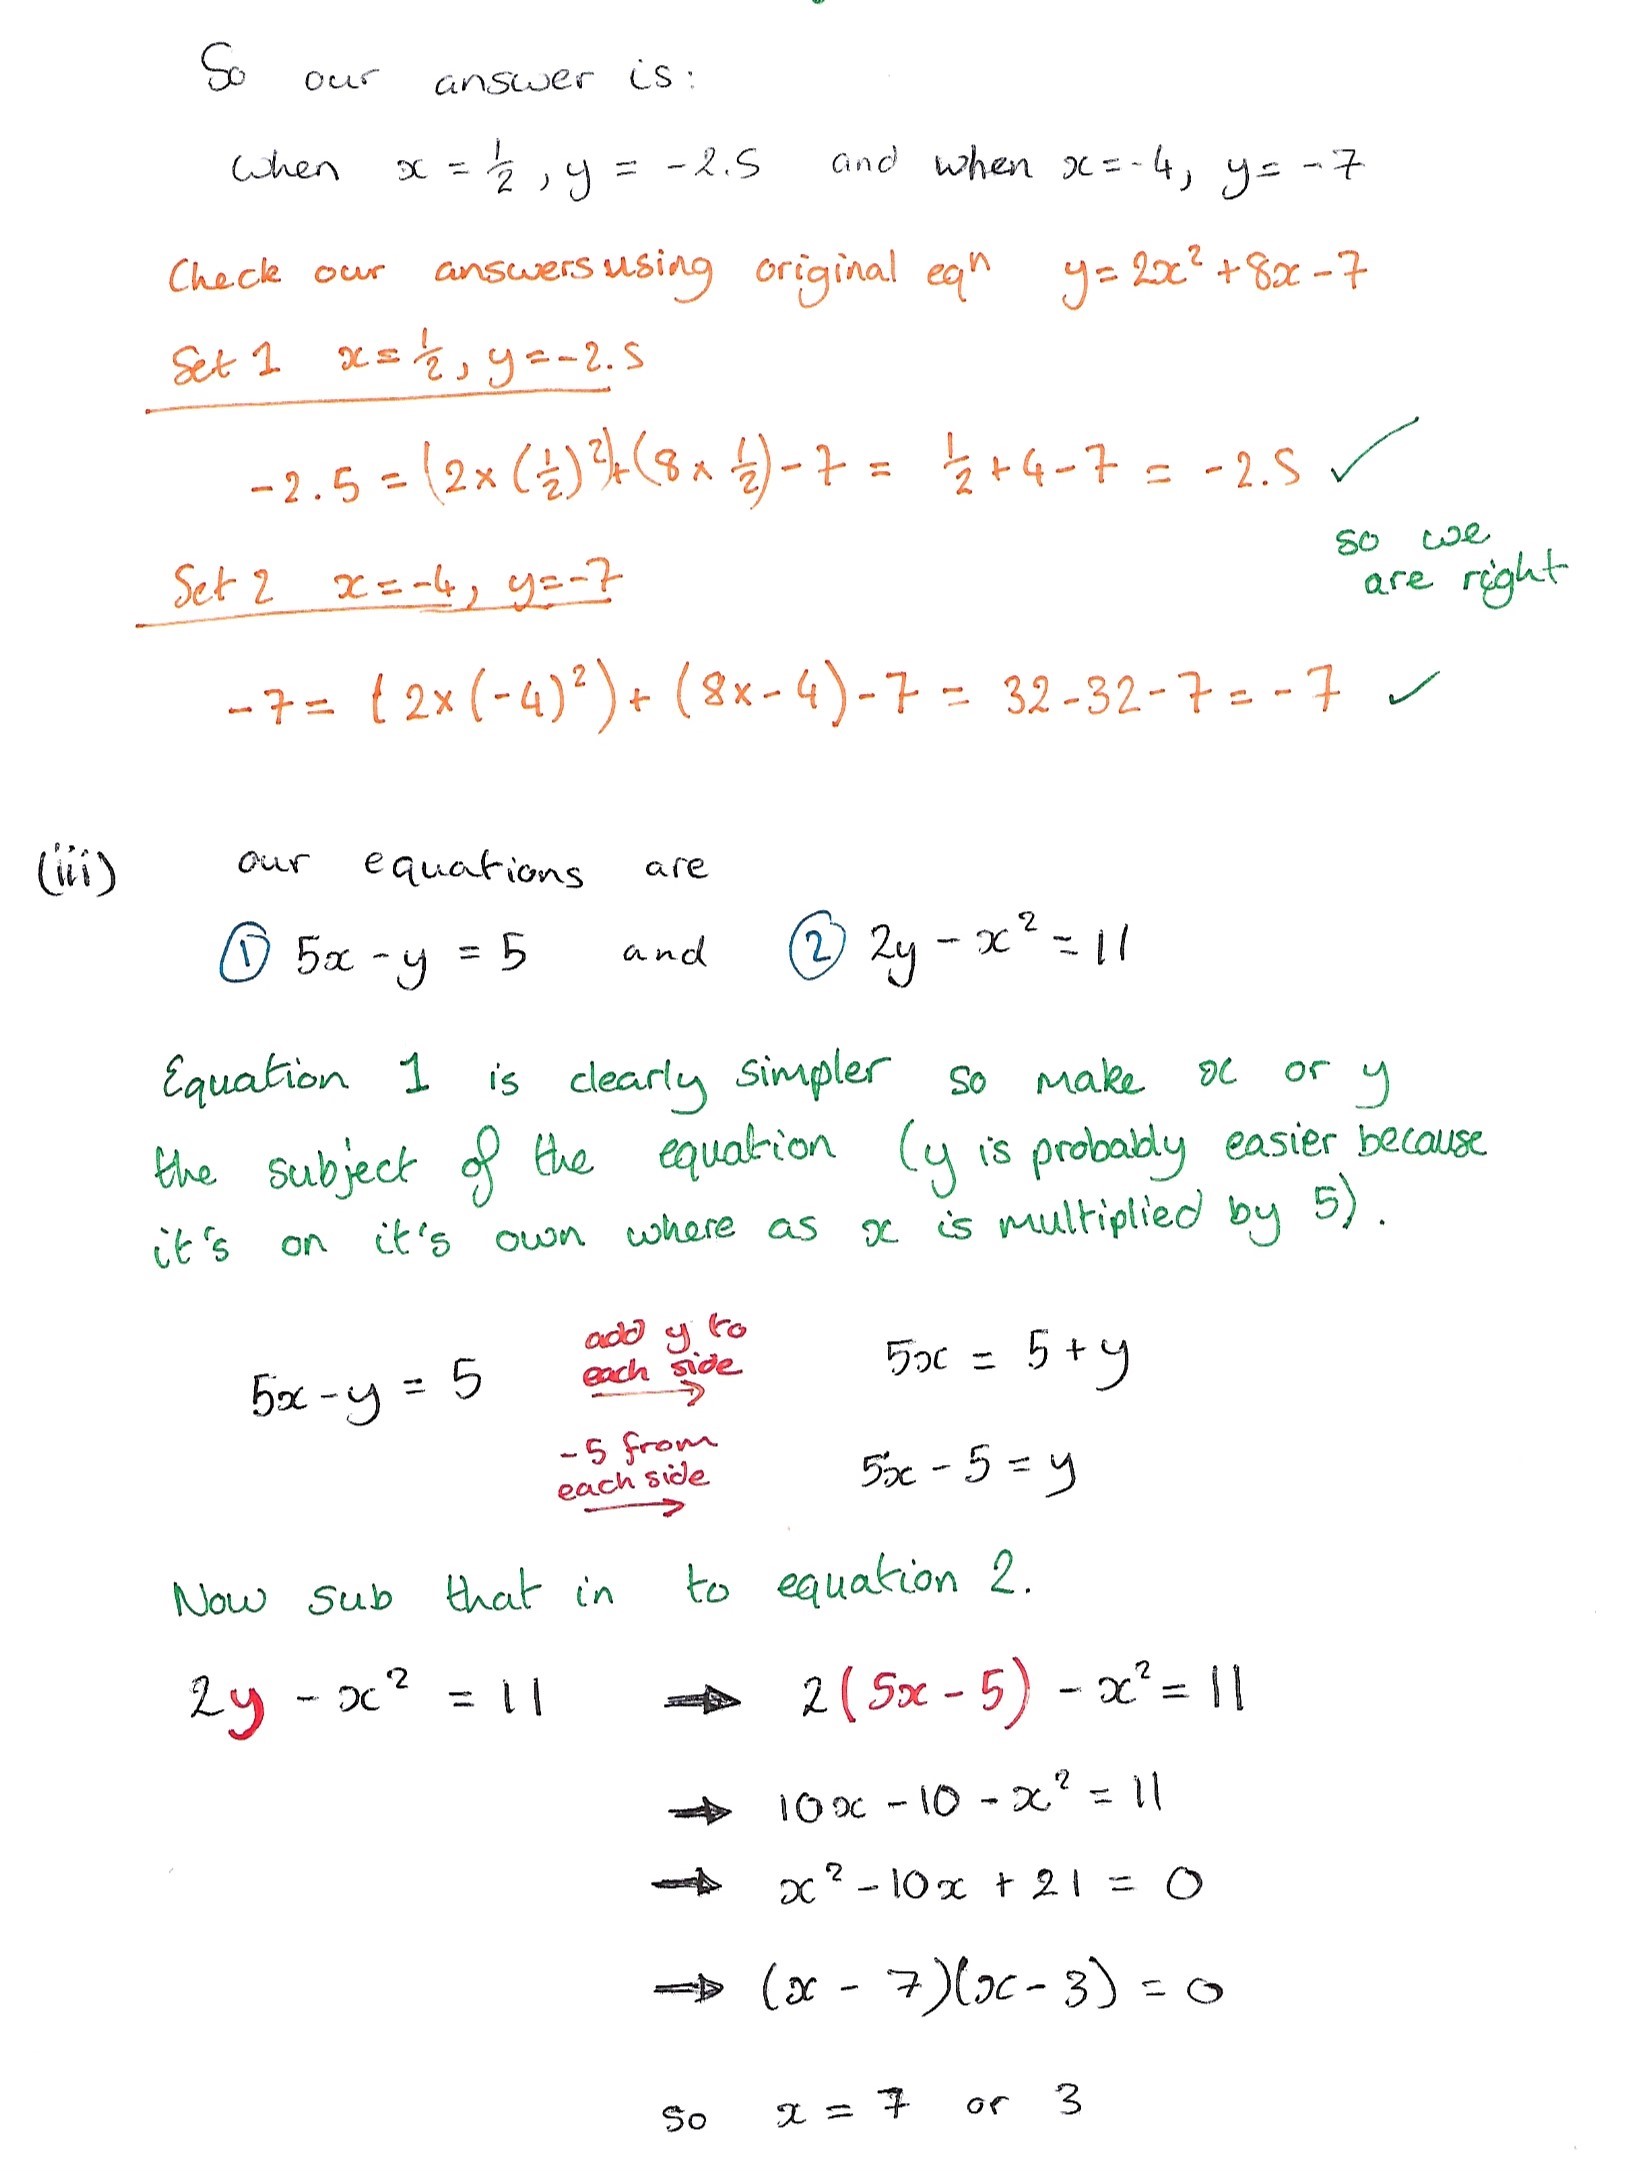 So our answer is:
when x = 1/2, y = -2.5 and when x = -4, y = -7
Check our answers using original eqn y = 2x² + 8x - 7
Set 1 x = 1/2, y = -2.5
-2.5 = (2 × (1/2)²) + (8 × 1/2) - 7 = 1/2 + 4 - 7 = -2.5 ✓
so we
are right
Set 2 x = -4, y = -7
-7 = (2 × (-4)²) + (8 × -4) - 7 = 32 - 32 - 7 = -7 ✓
(iii) our equations are
① 5x - y = 5 and ② 2y - x² = 11
Equation 1 is clearly simpler so make x or y
the subject of the equation (y is probably easier because
it's on it's own where as x is multiplied by 5).
5x - y = 5 add y to each side → 5x = 5 + y
-5 from each side → 5x - 5 = y
Now sub that in to equation 2.
2y - x² = 11 ⇒ 2(5x - 5) - x² = 11
⇒ 10x - 10 - x² = 11
⇒ x² - 10x + 21 = 0
⇒ (x - 7)(x - 3) = 0
so x = 7 or 3